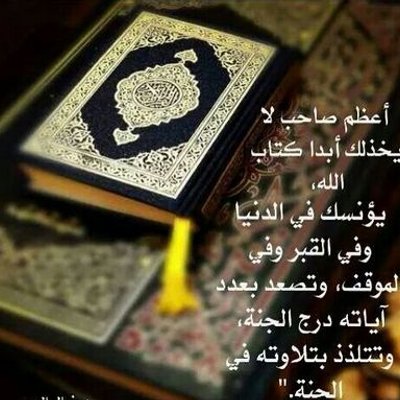 أعظم صاحب لا
يخذلك أبدا كتاب
الله،
يؤنسك في الدنيا
وفي القبر وفي
الموقف، وتصعد بعدد
آياته درج الجنة،
وتتلذذ بتلاوته في
الجنة."